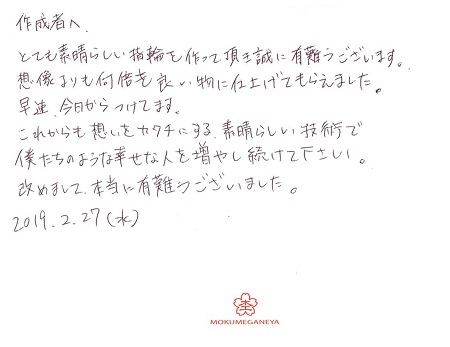 作成者へ
とても素晴らしい指輪を作って頂き誠に有難うございます。
想像よりも何倍も良い物に仕上げてもらえました。
早速、今日からつけてます。
これからも想いをカタチにする、素晴らしい技術で
僕たちのような幸せな人を増やし続けて下さい。
改めまして、本当に有難うございました。
2019.2.27(水)
MOKUMEGANEYA